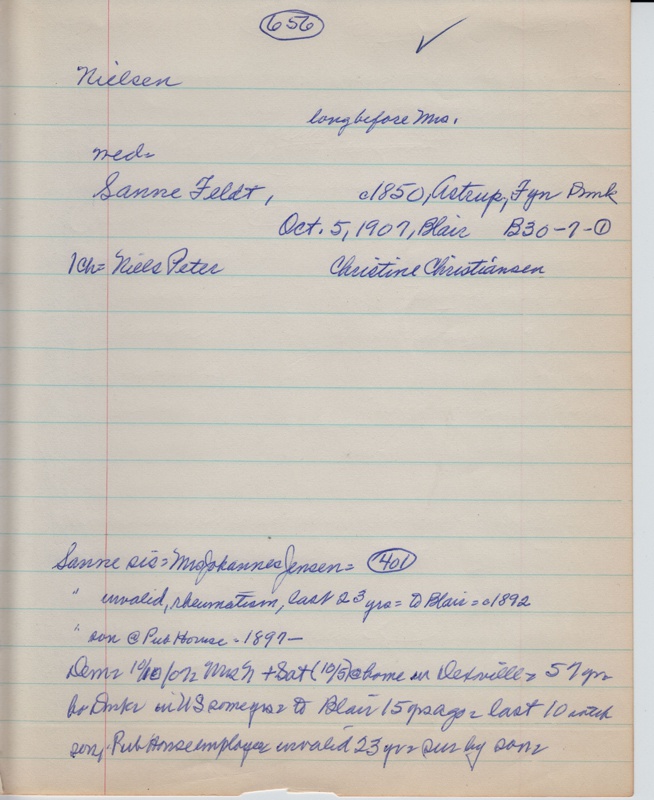 656 ✓
Nielsen
long before Mrs.
med=
Sanne Feldt, c1850, Astrup, Fyn Dmk
Oct. 5, 1907, Blair B30-7-①
1ch= Niels Peter Christine Christiansen
Sanne sis= Mrs Johannes Jensen= 401
" invalid, rheumatism, last 23 yrs= to Blair= c1892
" son @ Pub House - 1897-
Dem= 10/10/07= Mrs N + Sat (10/5) @ home in = 57 yrs
bo Dmk= in US some yrs= to Blair 15 yrs ago= last 10 with
son, Pub House employee invalid 23 yrs= sur by son=